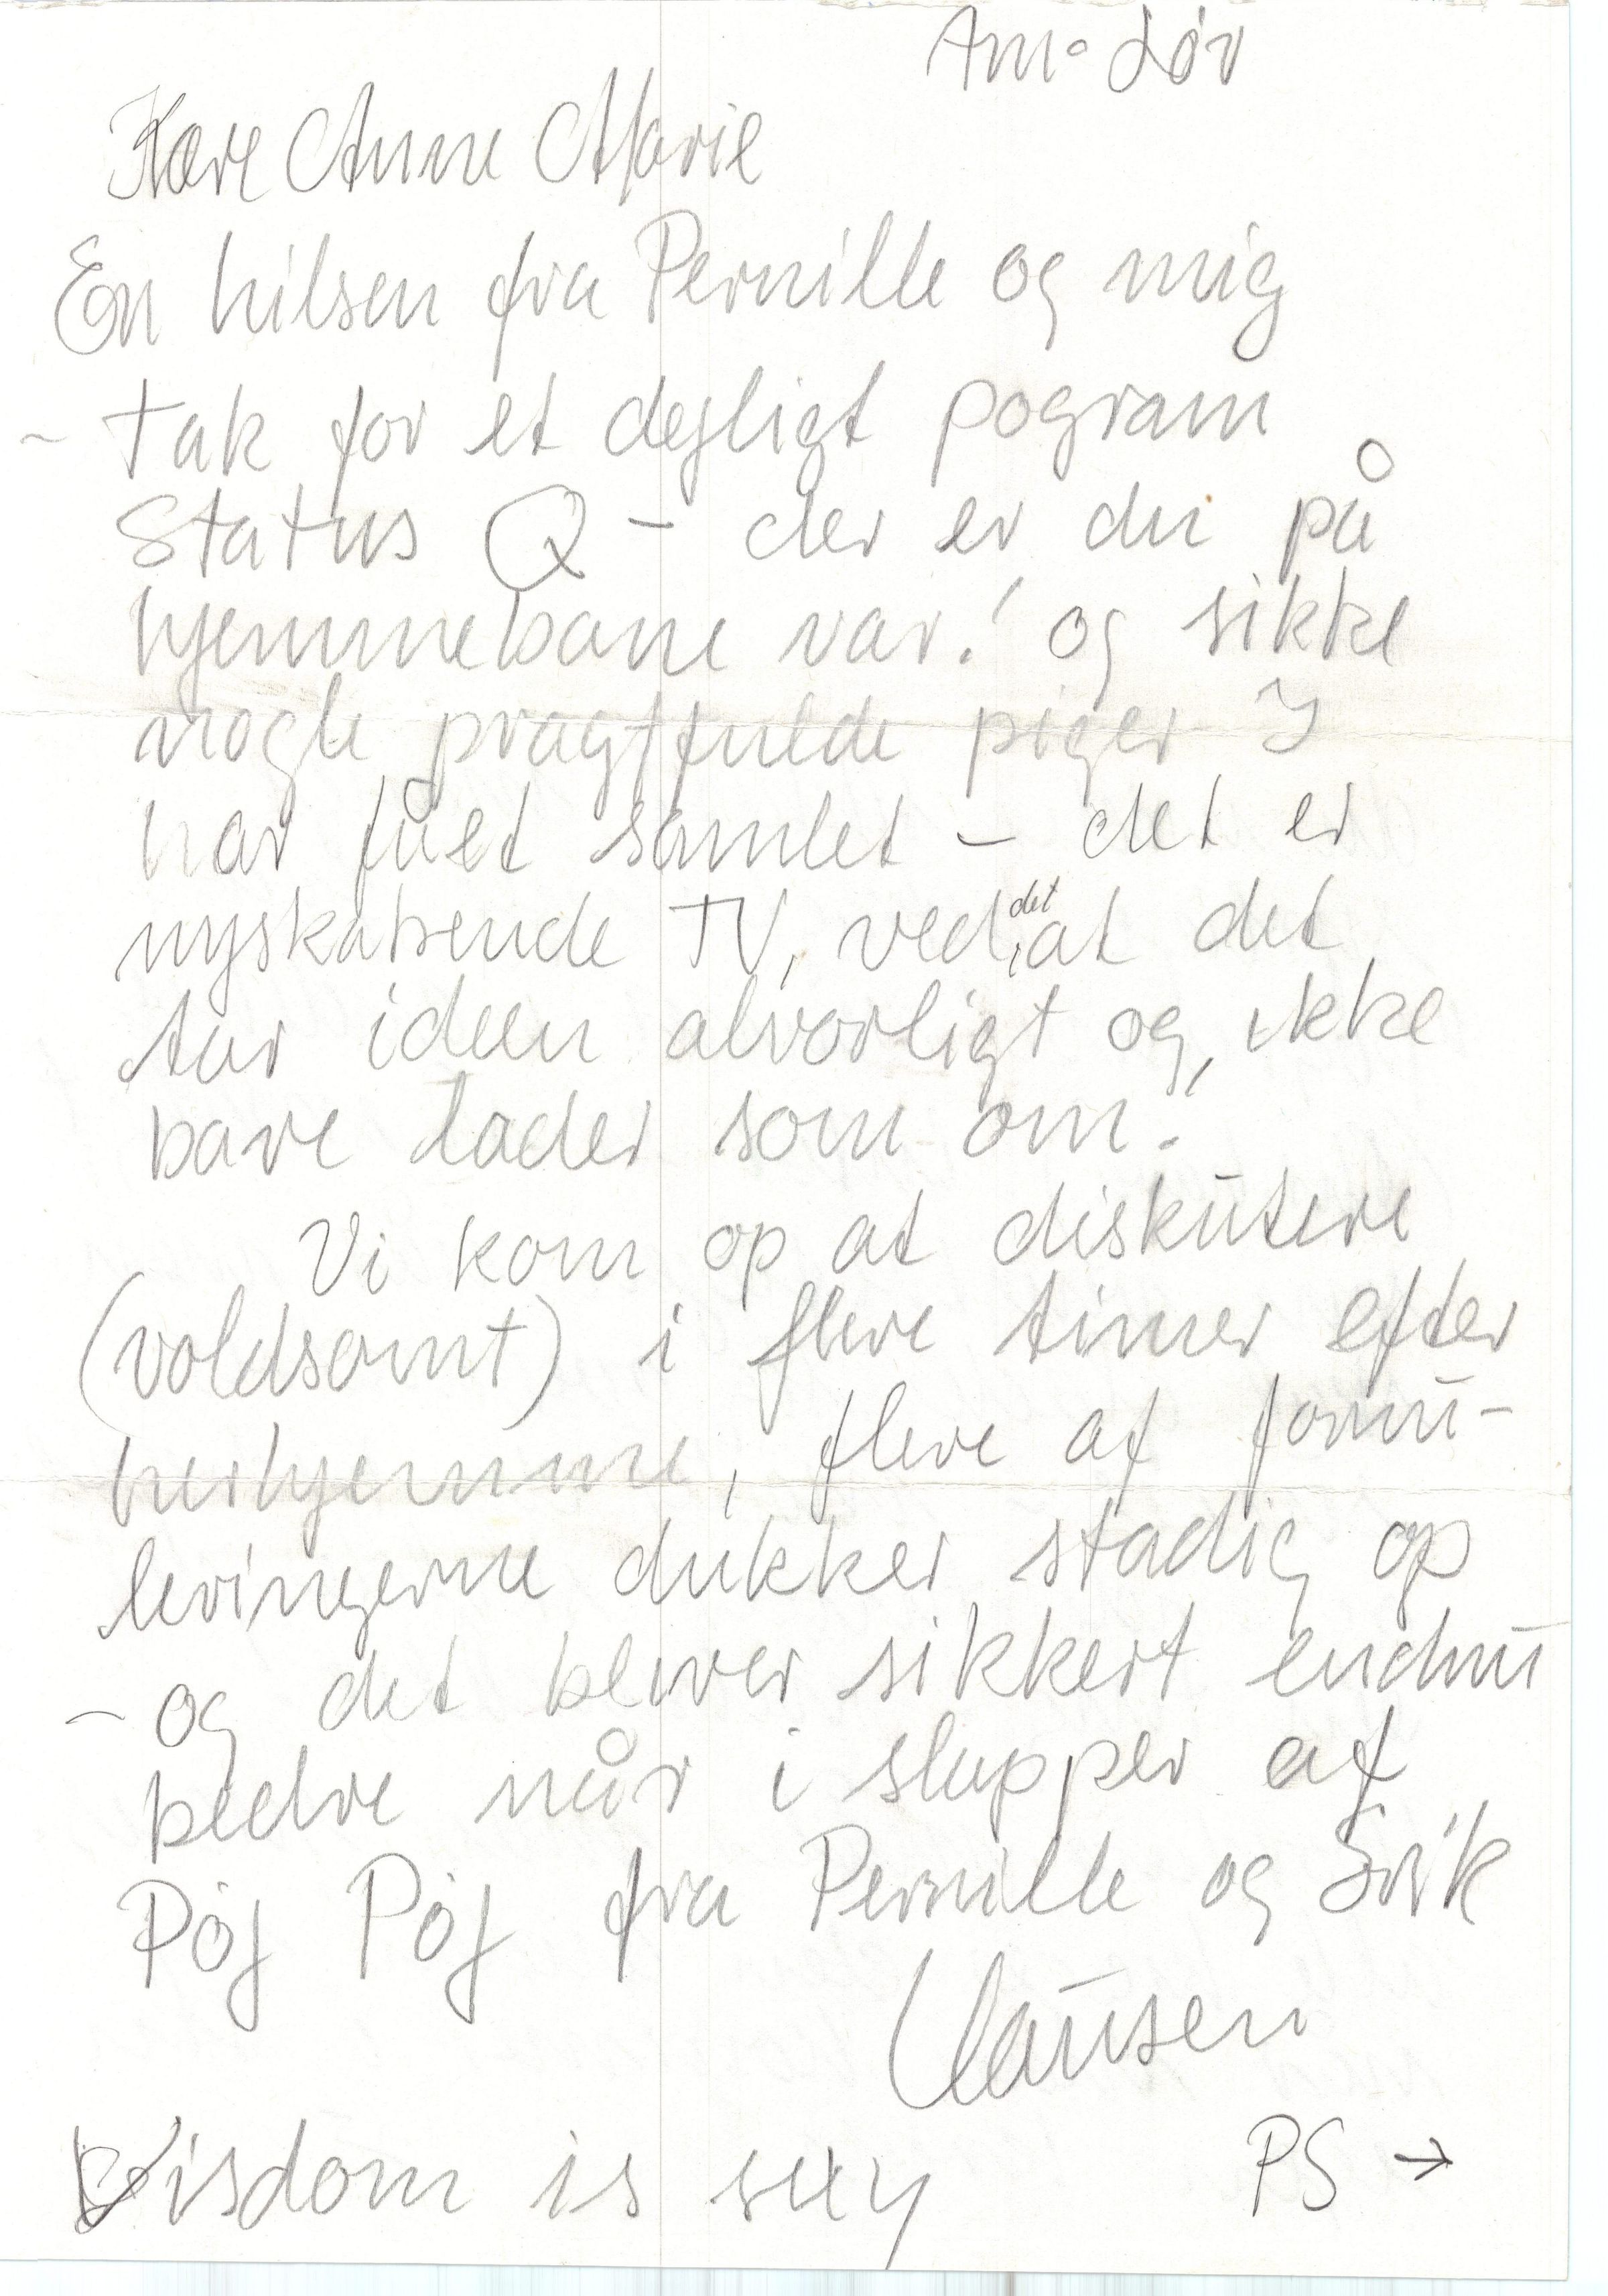 Am. Løv
Kære Anne Marie
En hilsen fra Pernille og mig
- Tak for et dejligt pogram
Status Q - der er du på
hjemmebane var! og sikke
nogle pragtfulde piger I
har fået samlet - det er
nyskabende TV, ved det, at det
tar ideen alvorligt og, ikke
bare lader som om!
Vi kom op at diskutere
(voldsomt) i flere timer efter
herhjemme, flere af formu-
leringerne dukker stadig op
- og det bliver sikkert endnu
bedre når i slapper af
Pøj Pøj fra Pernille og Erik
Clausen
Wisdom is sexy
PS →